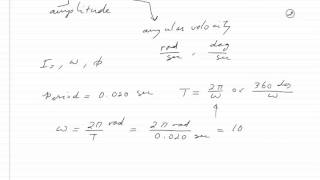 amplitude
angular velocity
rad/sec , deg/sec
I₀, ω, φ
Period = 0.020 sec T = 2π/ω or 360 deg/ω
ω = 2π rad/T = 2π rad/0.020 sec = 10